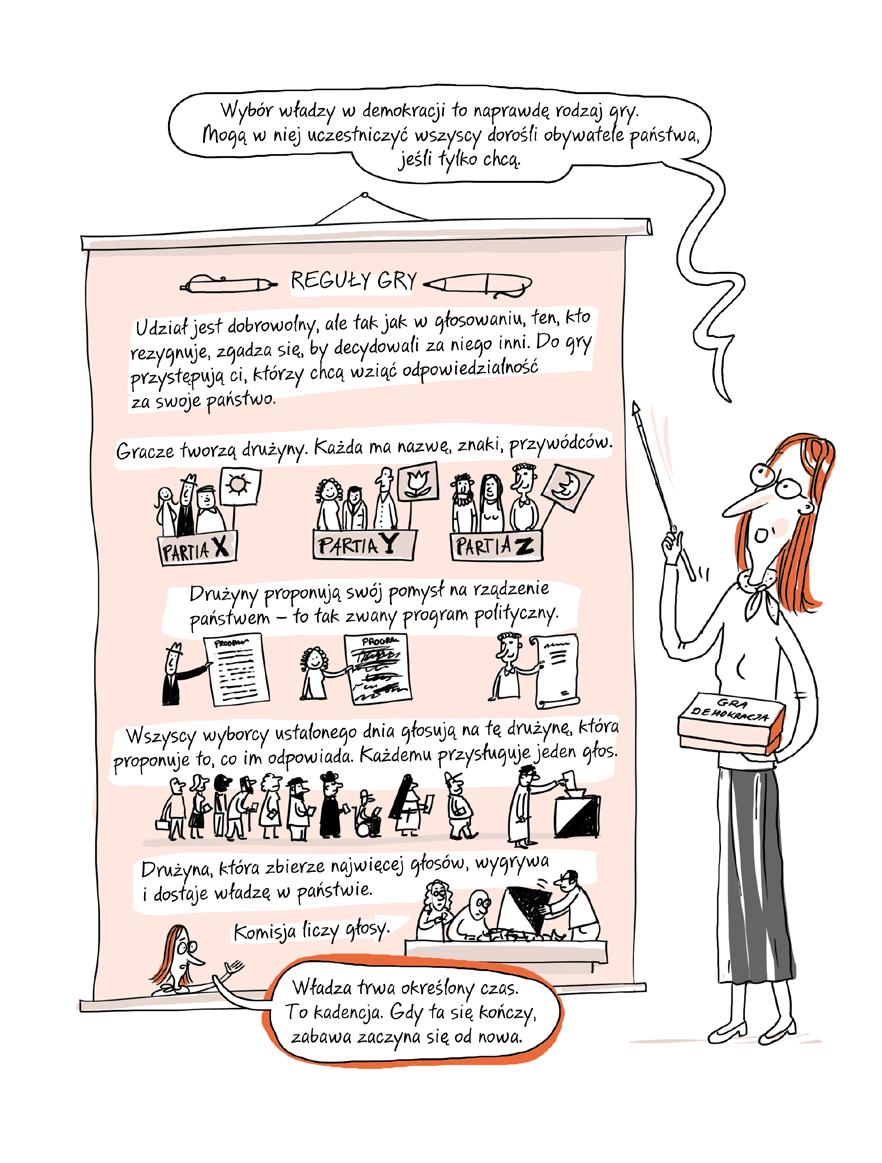 Wybór władzy w demokracji to naprawdę rodzaj gry.
Mogą w niej uczestniczyć wszyscy dorośli obywatele państwa,
jeśli tylko chcą.
REGUŁY GRY
Udział jest dobrowolny, ale tak jak w głosowaniu, ten, kto
rezygnuje, zgadza się, by decydowali za niego inni. Do gry
przystępują ci, którzy chcą wziąć odpowiedzialność
za swoje państwo.
Gracze tworzą drużyny. Każda ma nazwę, znaki, przywódców.
PARTIA X
PARTIA Y
PARTIA Z
Drużyny proponują swój pomysł na rządzenie
państwem – to tak zwany program polityczny.
PROGRAM
PROGRAM
Wszyscy wyborcy ustalonego dnia głosują na tę drużynę, która
proponuje to, co im odpowiada. Każdemu przysługuje jeden głos.
GRA
DEMOKRACJA
Drużyna, która zbierze najwięcej głosów, wygrywa
i dostaje władzę w państwie.
Komisja liczy głosy.
Władza trwa określony czas.
To kadencja. Gdy ta się kończy,
zabawa zaczyna się od nowa.